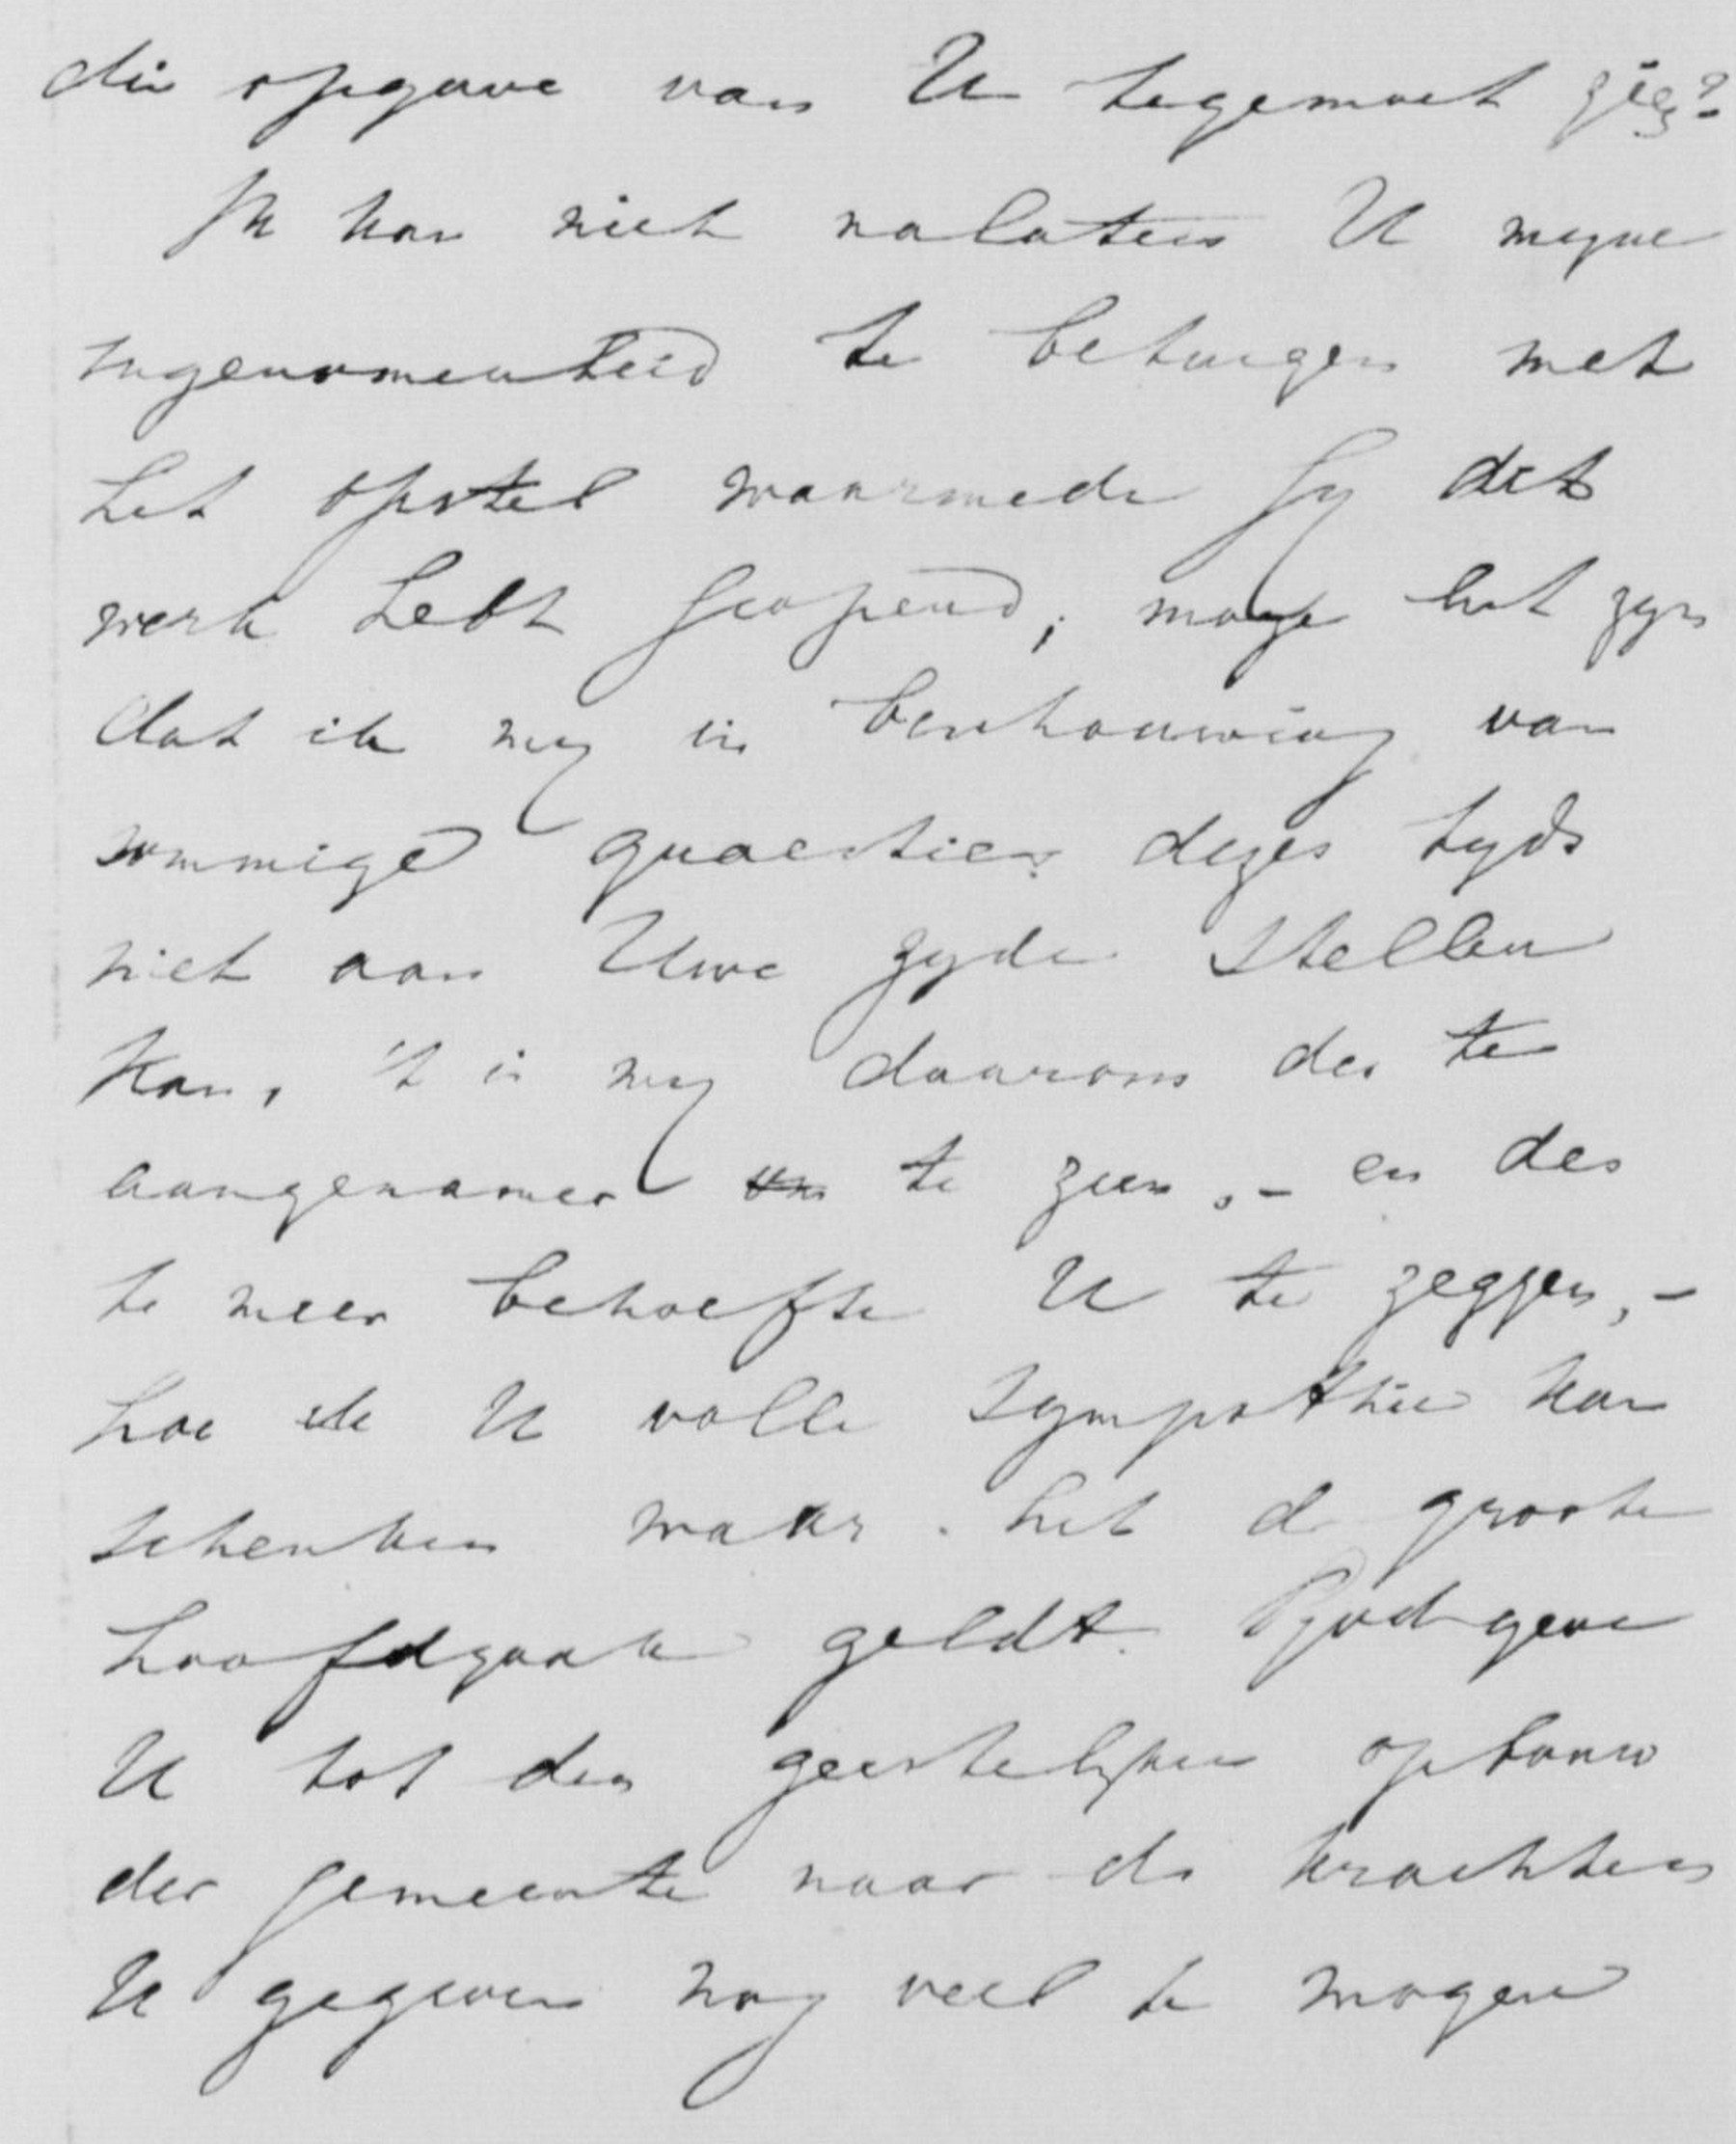 die opgave van U tegemoet zie?
Ik kan niet nalaten U myne
ingenomenheid te betuigen met
het opstel waarmede Gy dit
werk hebt geopend; moge het zyn
dat ik my in beschouwing van
sommige quaesties dezes tyds
niet aan Uwe zyde stellen
kan, 't is my daarom des te
aangenamer te zien, - en des
te meer behoefte U te zeggen, -
hoe ik U volle sympathie kan
schenken waar het de groote
hoofdzaak geldt. God geve
U tot den geestelyken opbouw
der gemeente naar de krachten
U gegeven nog veel te mogen